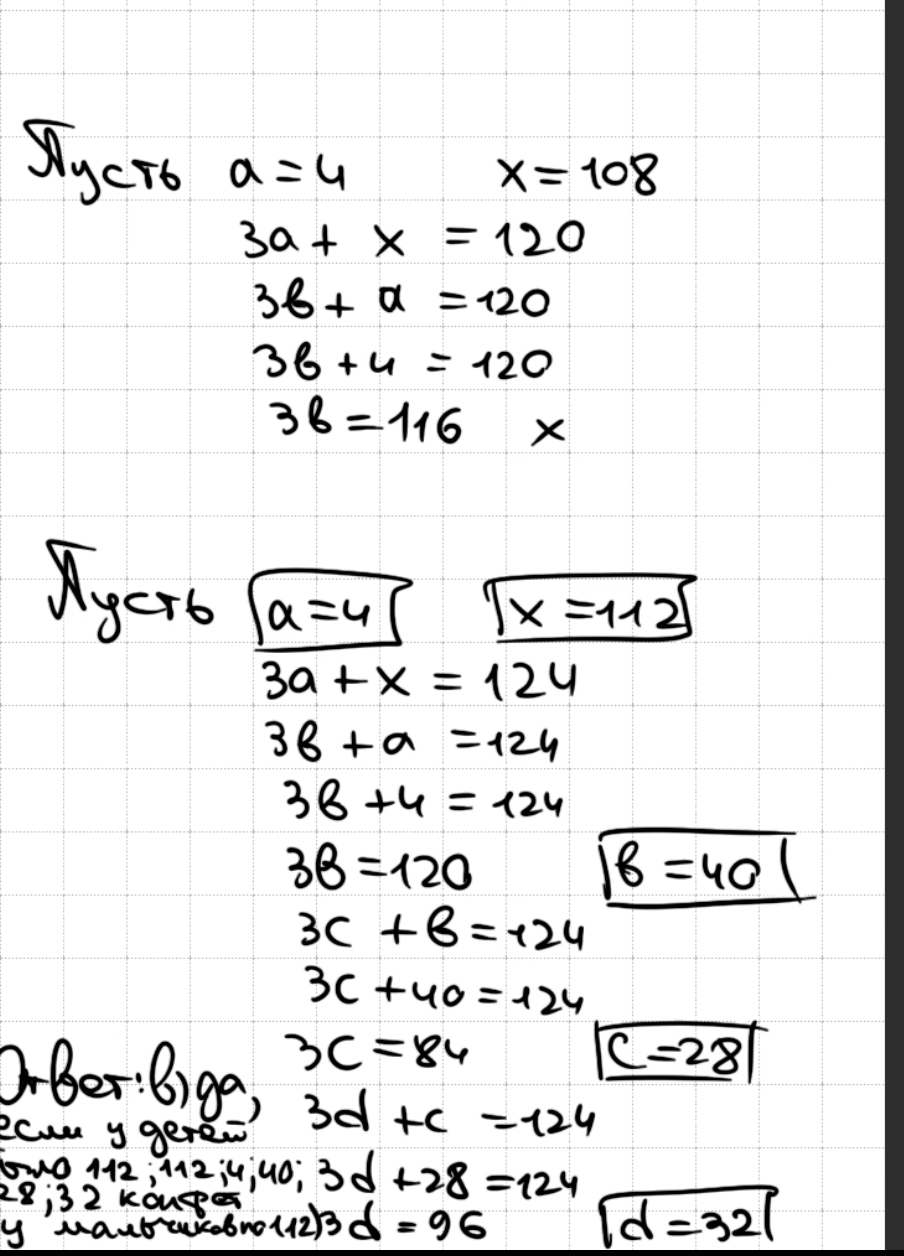 Пусть a = 4 x = 108
3a + x = 120
3в + a = 120
3в + 4 = 120
3в = 116 x
Пусть a = 4 x = 112
3a + x = 124
3в + a = 124
3в + 4 = 124
3в = 120 в = 40
3c + в = 124
3c + 40 = 124
3c = 84 c = 28
3d + c = 124
3d + 28 = 124
3d = 96 d = 32
Ответ: в) да,
если у детей
было 112; 112; 4; 40;
28; 32 конфет
у мальчиков по 112)